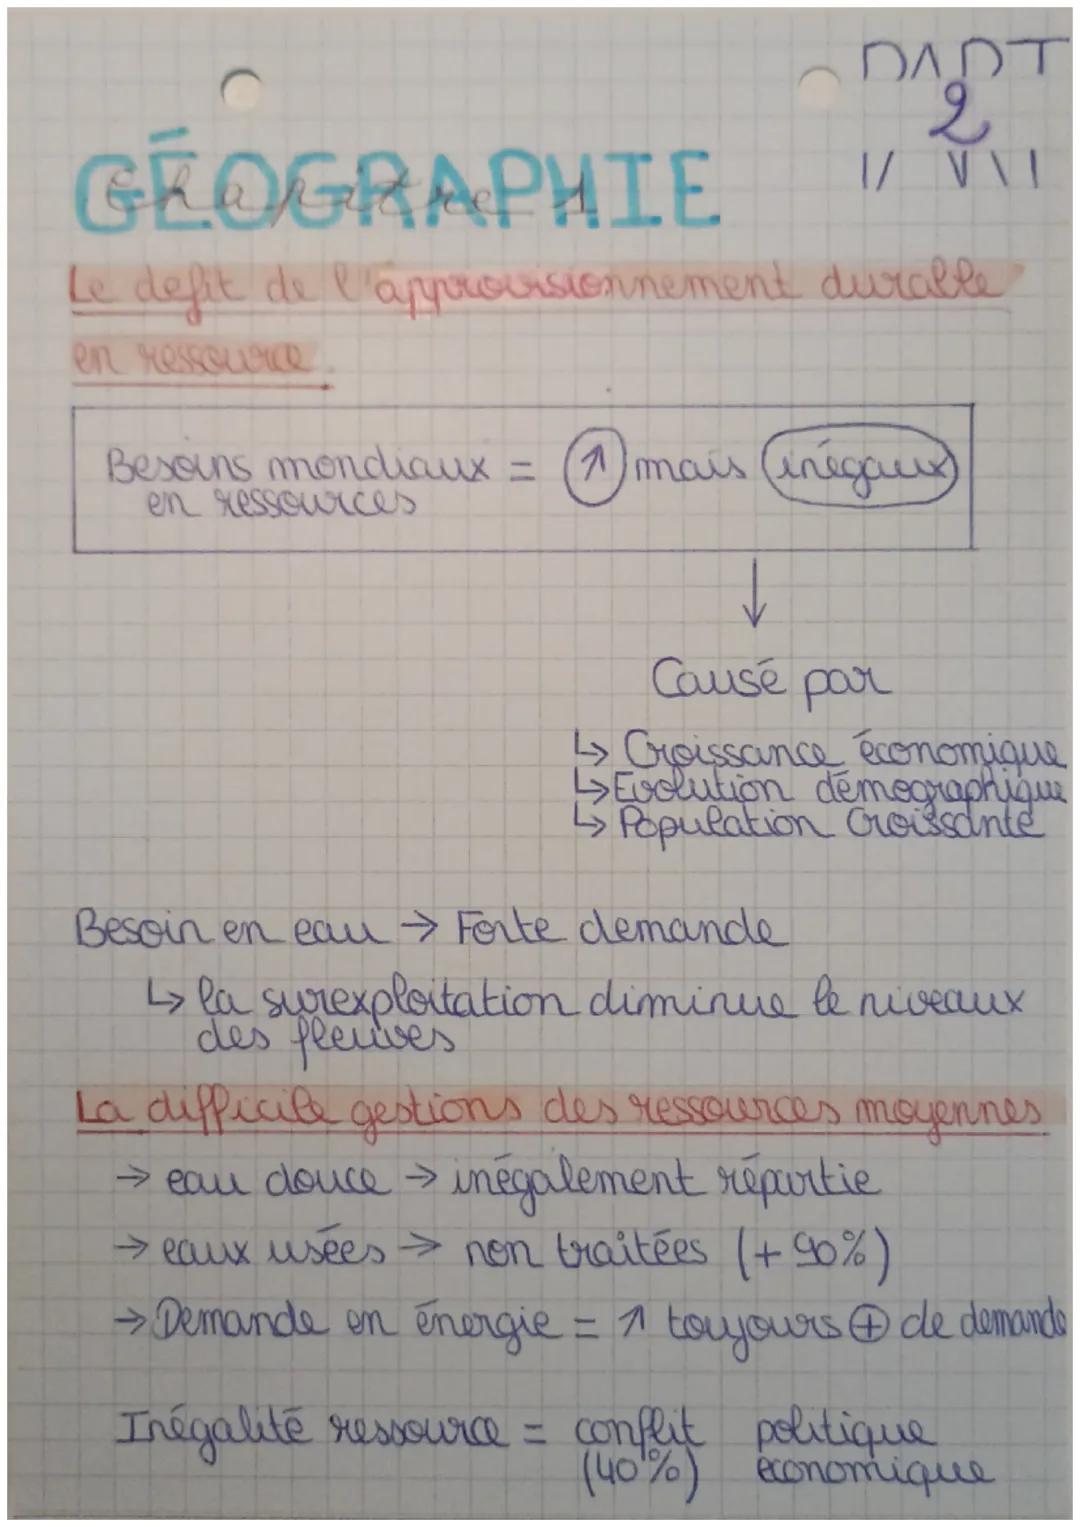 PART
2
GÉOGRAPHIE
Chapitre 1
Le defit de l'approvisionnement durable
en ressource.
Besoins mondiaux = ↗ mais inégaux
en ressources
↓
Causé par
↳ Croissance économique
↳ Evolution démographique
↳ Population Croissante
Besoin en eau → Forte demande
↳ la surexploitation diminue le niveaux
des fleuves
La difficile gestions des ressources moyennes
→ eau douce → inégalement répartie
→ eaux usées → non traitées (+ 90%)
→ Demande en énergie = ↗ toujours ⊕ de demande
Inégalité ressource = conflit politique
(40%) économique